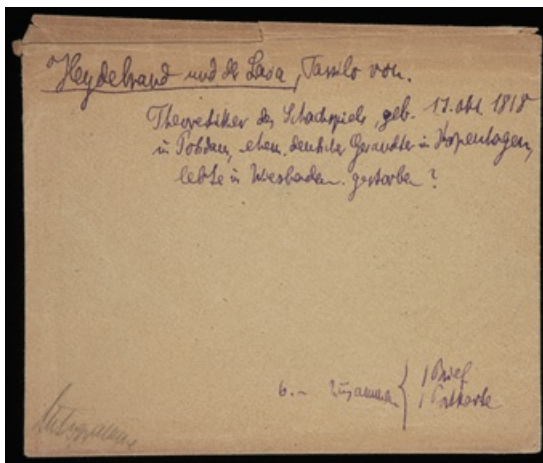 Heydebrand und der Lasa, Tassilo von.
Theoretiker des Schachspiels, geb. 17. Okt. 1818
in Potsdam, ehem. deutscher Gesandter in Kopenhagen,
lebte in Wiesbaden. gestorben ?
6.- zusammen { 1 Brief
1 Postkarte